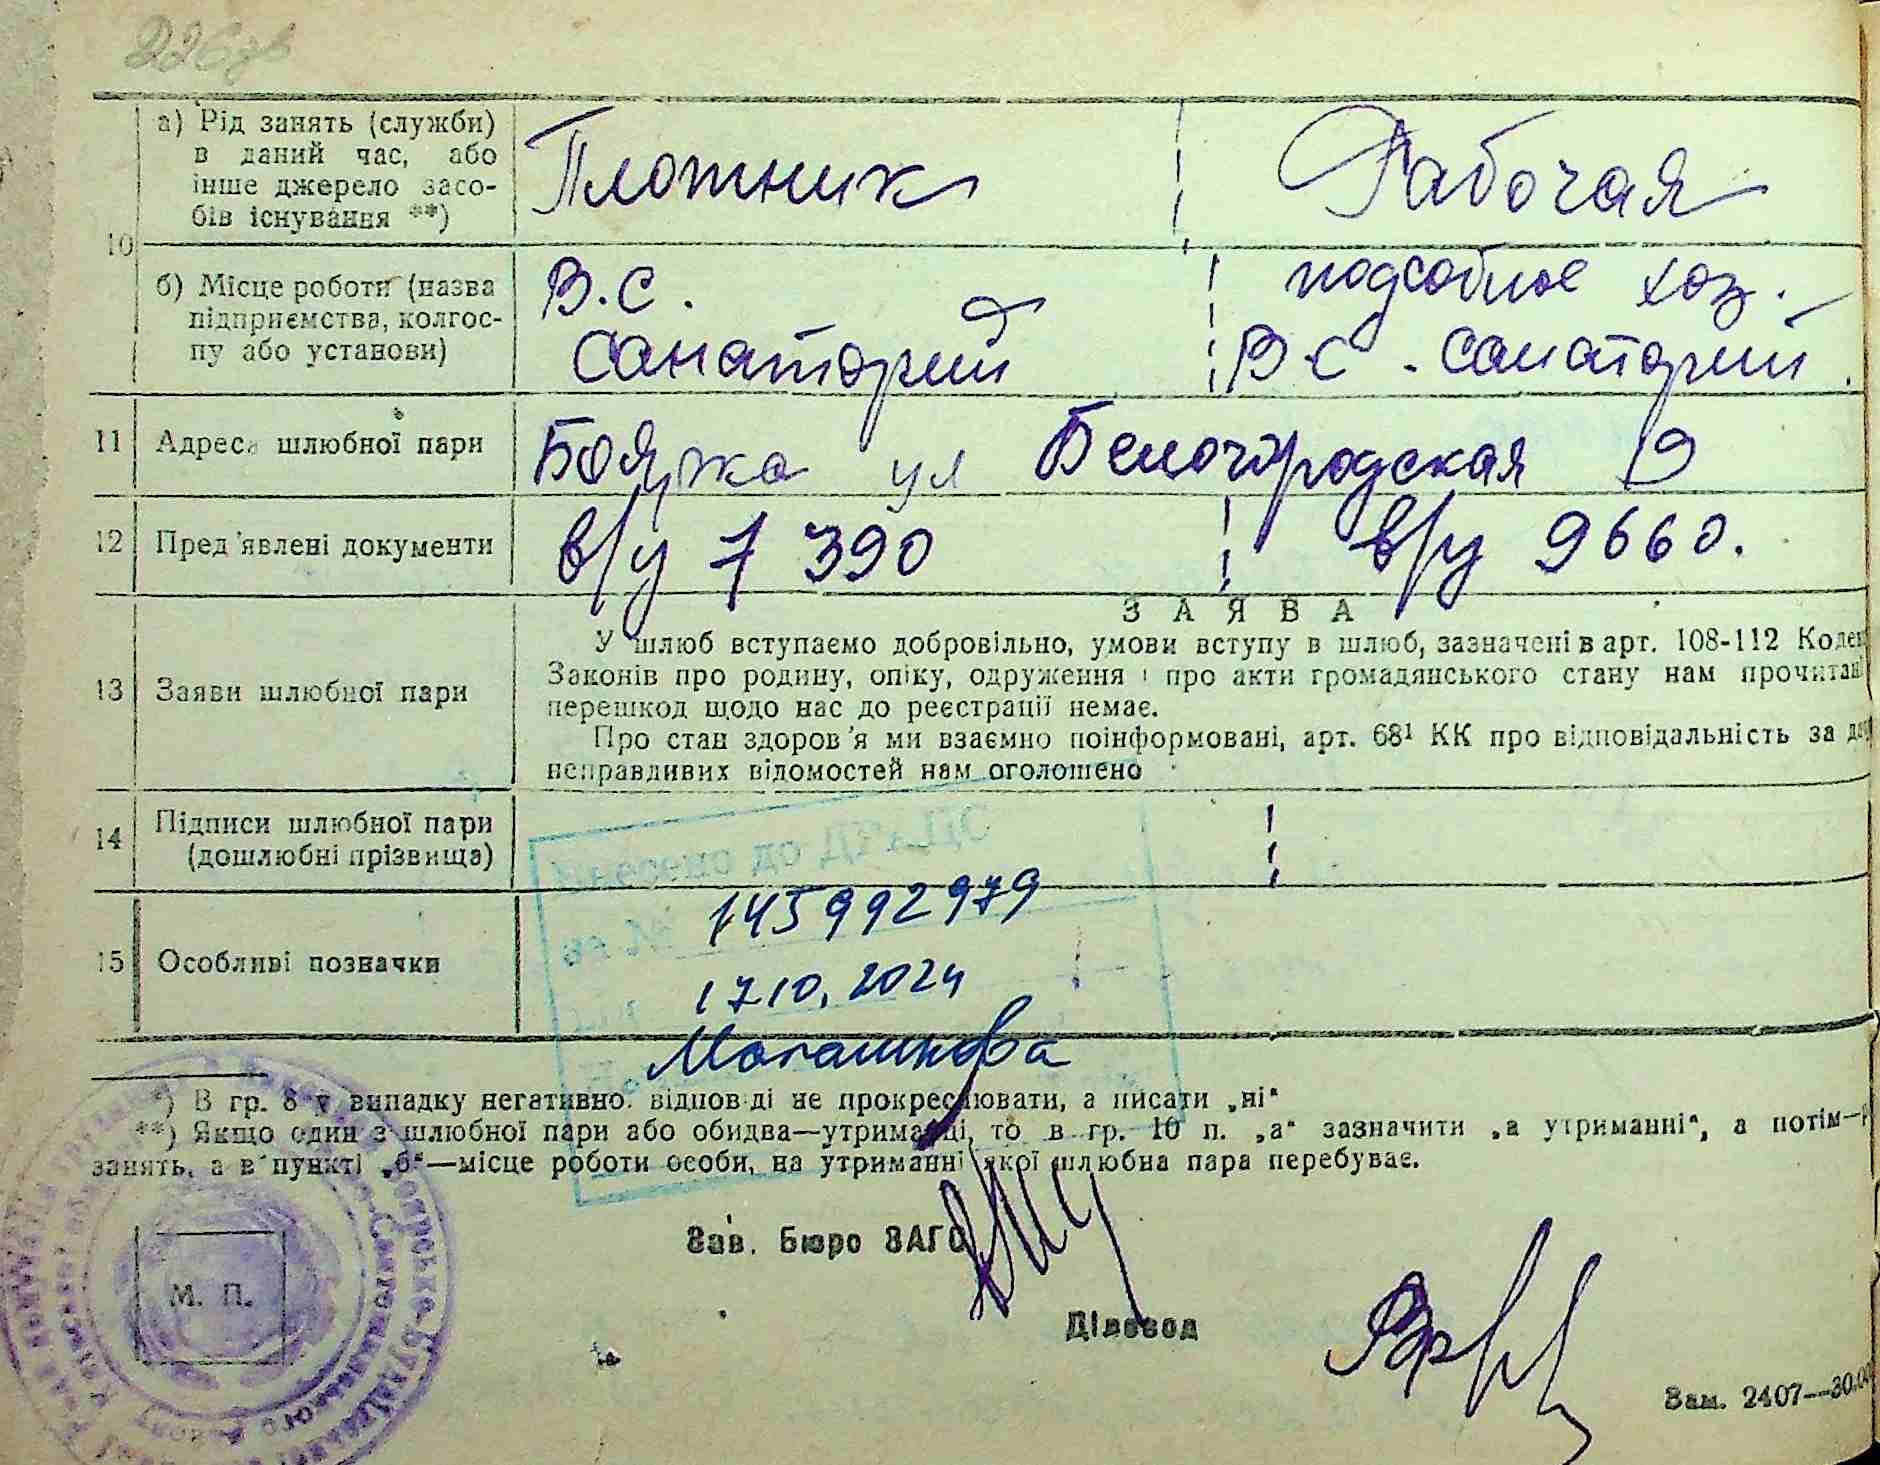 226 зв
10
а) Рід занять (служби)
в даний час, або
інше джерело засо-
бів існування **)
Плотник
Рабочая
б) Місце роботи (назва
підприємства, колгос-
пу або установи)
В.С.
Санаторий
подсобное хоз.
В.С. Санаторий
11
Адреса шлюбної пари
Боярка ул Белогородская 9
12
Пред'явлені документи
в/у 7390
в/у 9660.
13
Заяви шлюбної пари
ЗАЯВА
У шлюб вступаємо добровільно, умови вступу в шлюб, зазначені в арт. 108-112 Кодек
Законів про родину, опіку, одруження і про акти громадянського стану нам прочитані
перешкод щодо нас до реєстрації немає.
Про стан здоров'я ми взаємно поінформовані, арт. 68¹ КК про відповідальність за да
неправдивих відомостей нам оголошено
14
Підписи шлюбної пари
(дошлюбні прізвища)
15
Особливі позначки
145992979
17.10.2024
*) В гр. 8 у випадку негативно. відповіді не прокреслювати, а писати „ні“
**) Якщо один з шлюбної пари або обидва—утриманці, то в гр. 10 п. „а“ зазначити „а утриманні“, а потім—р
занять, а в пункті „б“—місце роботи особи, на утриманні якої шлюбна пара перебуває.
Зав. Бюро ЗАГС
М. П.
Діловод
Зам. 2407—30.00